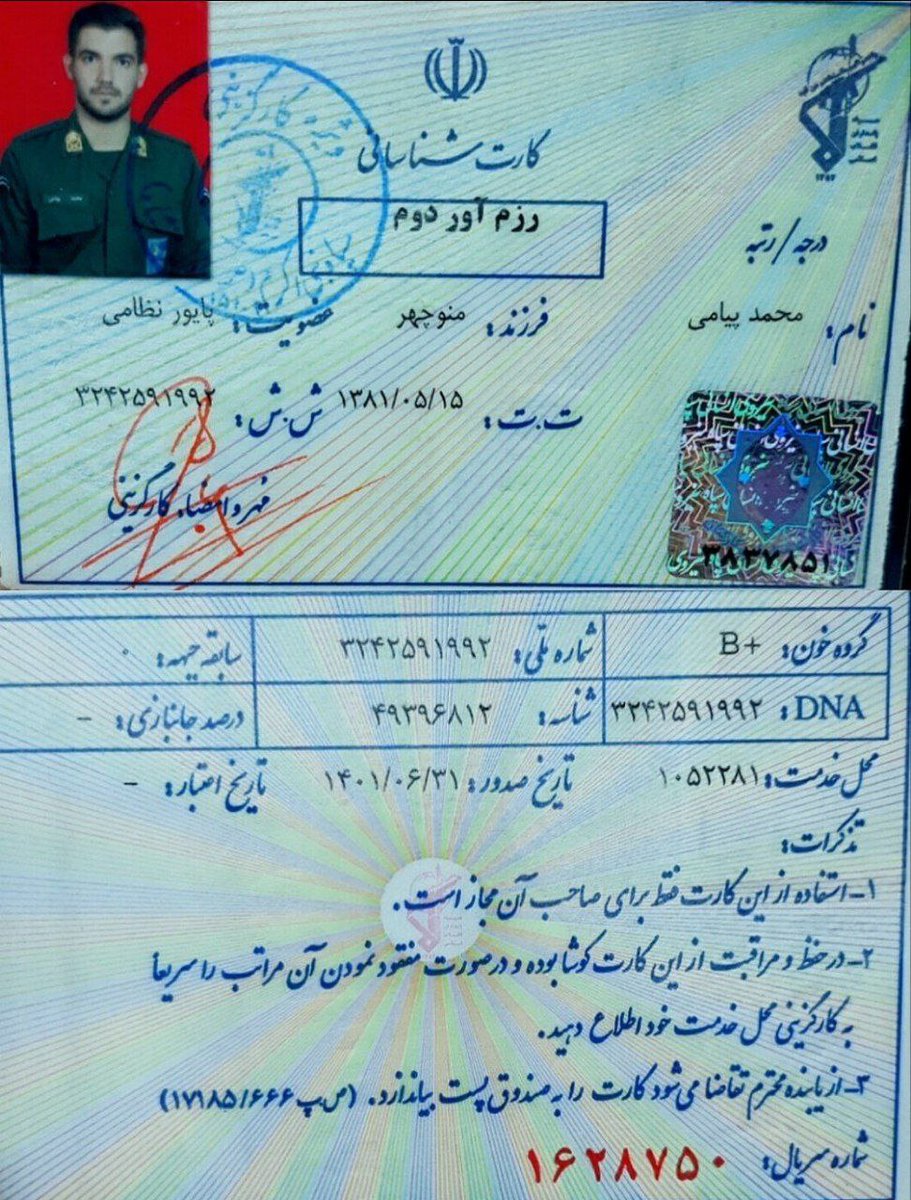 کارت شناسائی
درجه/رتبه
رزم آور دوم
نام: محمد پیامی فرزند: منوچهر عضویت: پایور نظامی
ت.ت: ۱۳۸۱/۰۵/۱۵ ش.ش: ۳۲۴۲۵۹۱۹۹۲
مهر و امضاء کارگزینی
۳۸۳۷۸۵۱
گروه خون: B+ شماره ملّی: ۳۲۴۲۵۹۱۹۹۲ سابقه جبهه: ۰
DNA: ۳۲۴۲۵۹۱۹۹۲ شناسه: ۴۹۳۹۶۸۱۲ درصد جانبازی: -
محل خدمت: ۱۰۵۲۲۸۱ تاریخ صدور: ۱۴۰۱/۰۶/۳۱ تاریخ اعتبار: -
تذکرات:
۱- استفاده از این کارت فقط برای صاحب آن مجاز است.
۲- در حفظ و مراقبت از این کارت کوشا بوده و در صورت مفقود نمودن آن مراتب را سریعاً
به کارگزینی محل خدمت خود اطلاع دهید.
۳- از یابنده محترم تقاضا می‌شود کارت را به صندوق پست بیاندازد. (ص پ ۱۷۱۸۵/۶۶۶)
شماره سریال: ۱۶۲۸۷۵۰